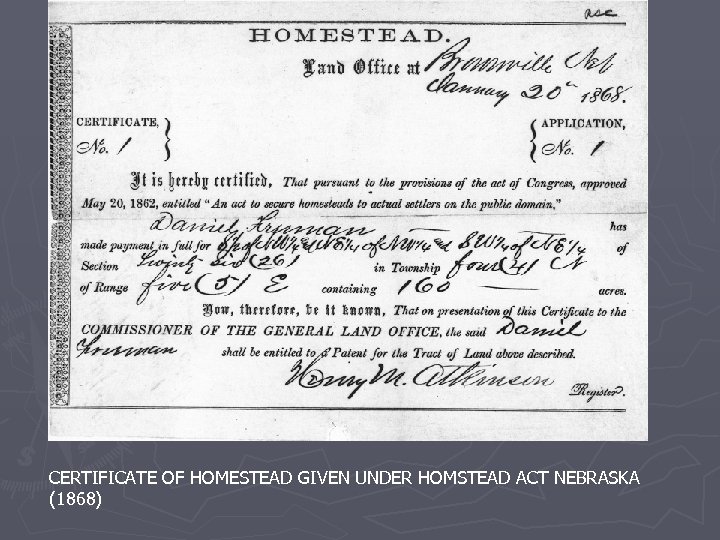 HOMESTEAD.
Land Office at Brownville Neb
January 20th 1868.
CERTIFICATE, No. 1
APPLICATION, No. 1
It is hereby certified, That pursuant to the provisions of the act of Congress, approved
May 20, 1862, entitled "An act to secure homesteads to actual settlers on the public domain,"
Daniel Freeman has
made payment in full for S½ of NW¼ & NE¼ of NW¼ & SW¼ of NE¼ of
Section Twenty Six (26) in Township four (4) N
of Range five (5) E containing 160 acres.
Now, therefore, be it known, That on presentation of this Certificate to the
COMMISSIONER OF THE GENERAL LAND OFFICE, the said Daniel
Freeman shall be entitled to a Patent for the Tract of Land above described.
Henry M. Atkinson
Register.
CERTIFICATE OF HOMESTEAD GIVEN UNDER HOMSTEAD ACT NEBRASKA
(1868)